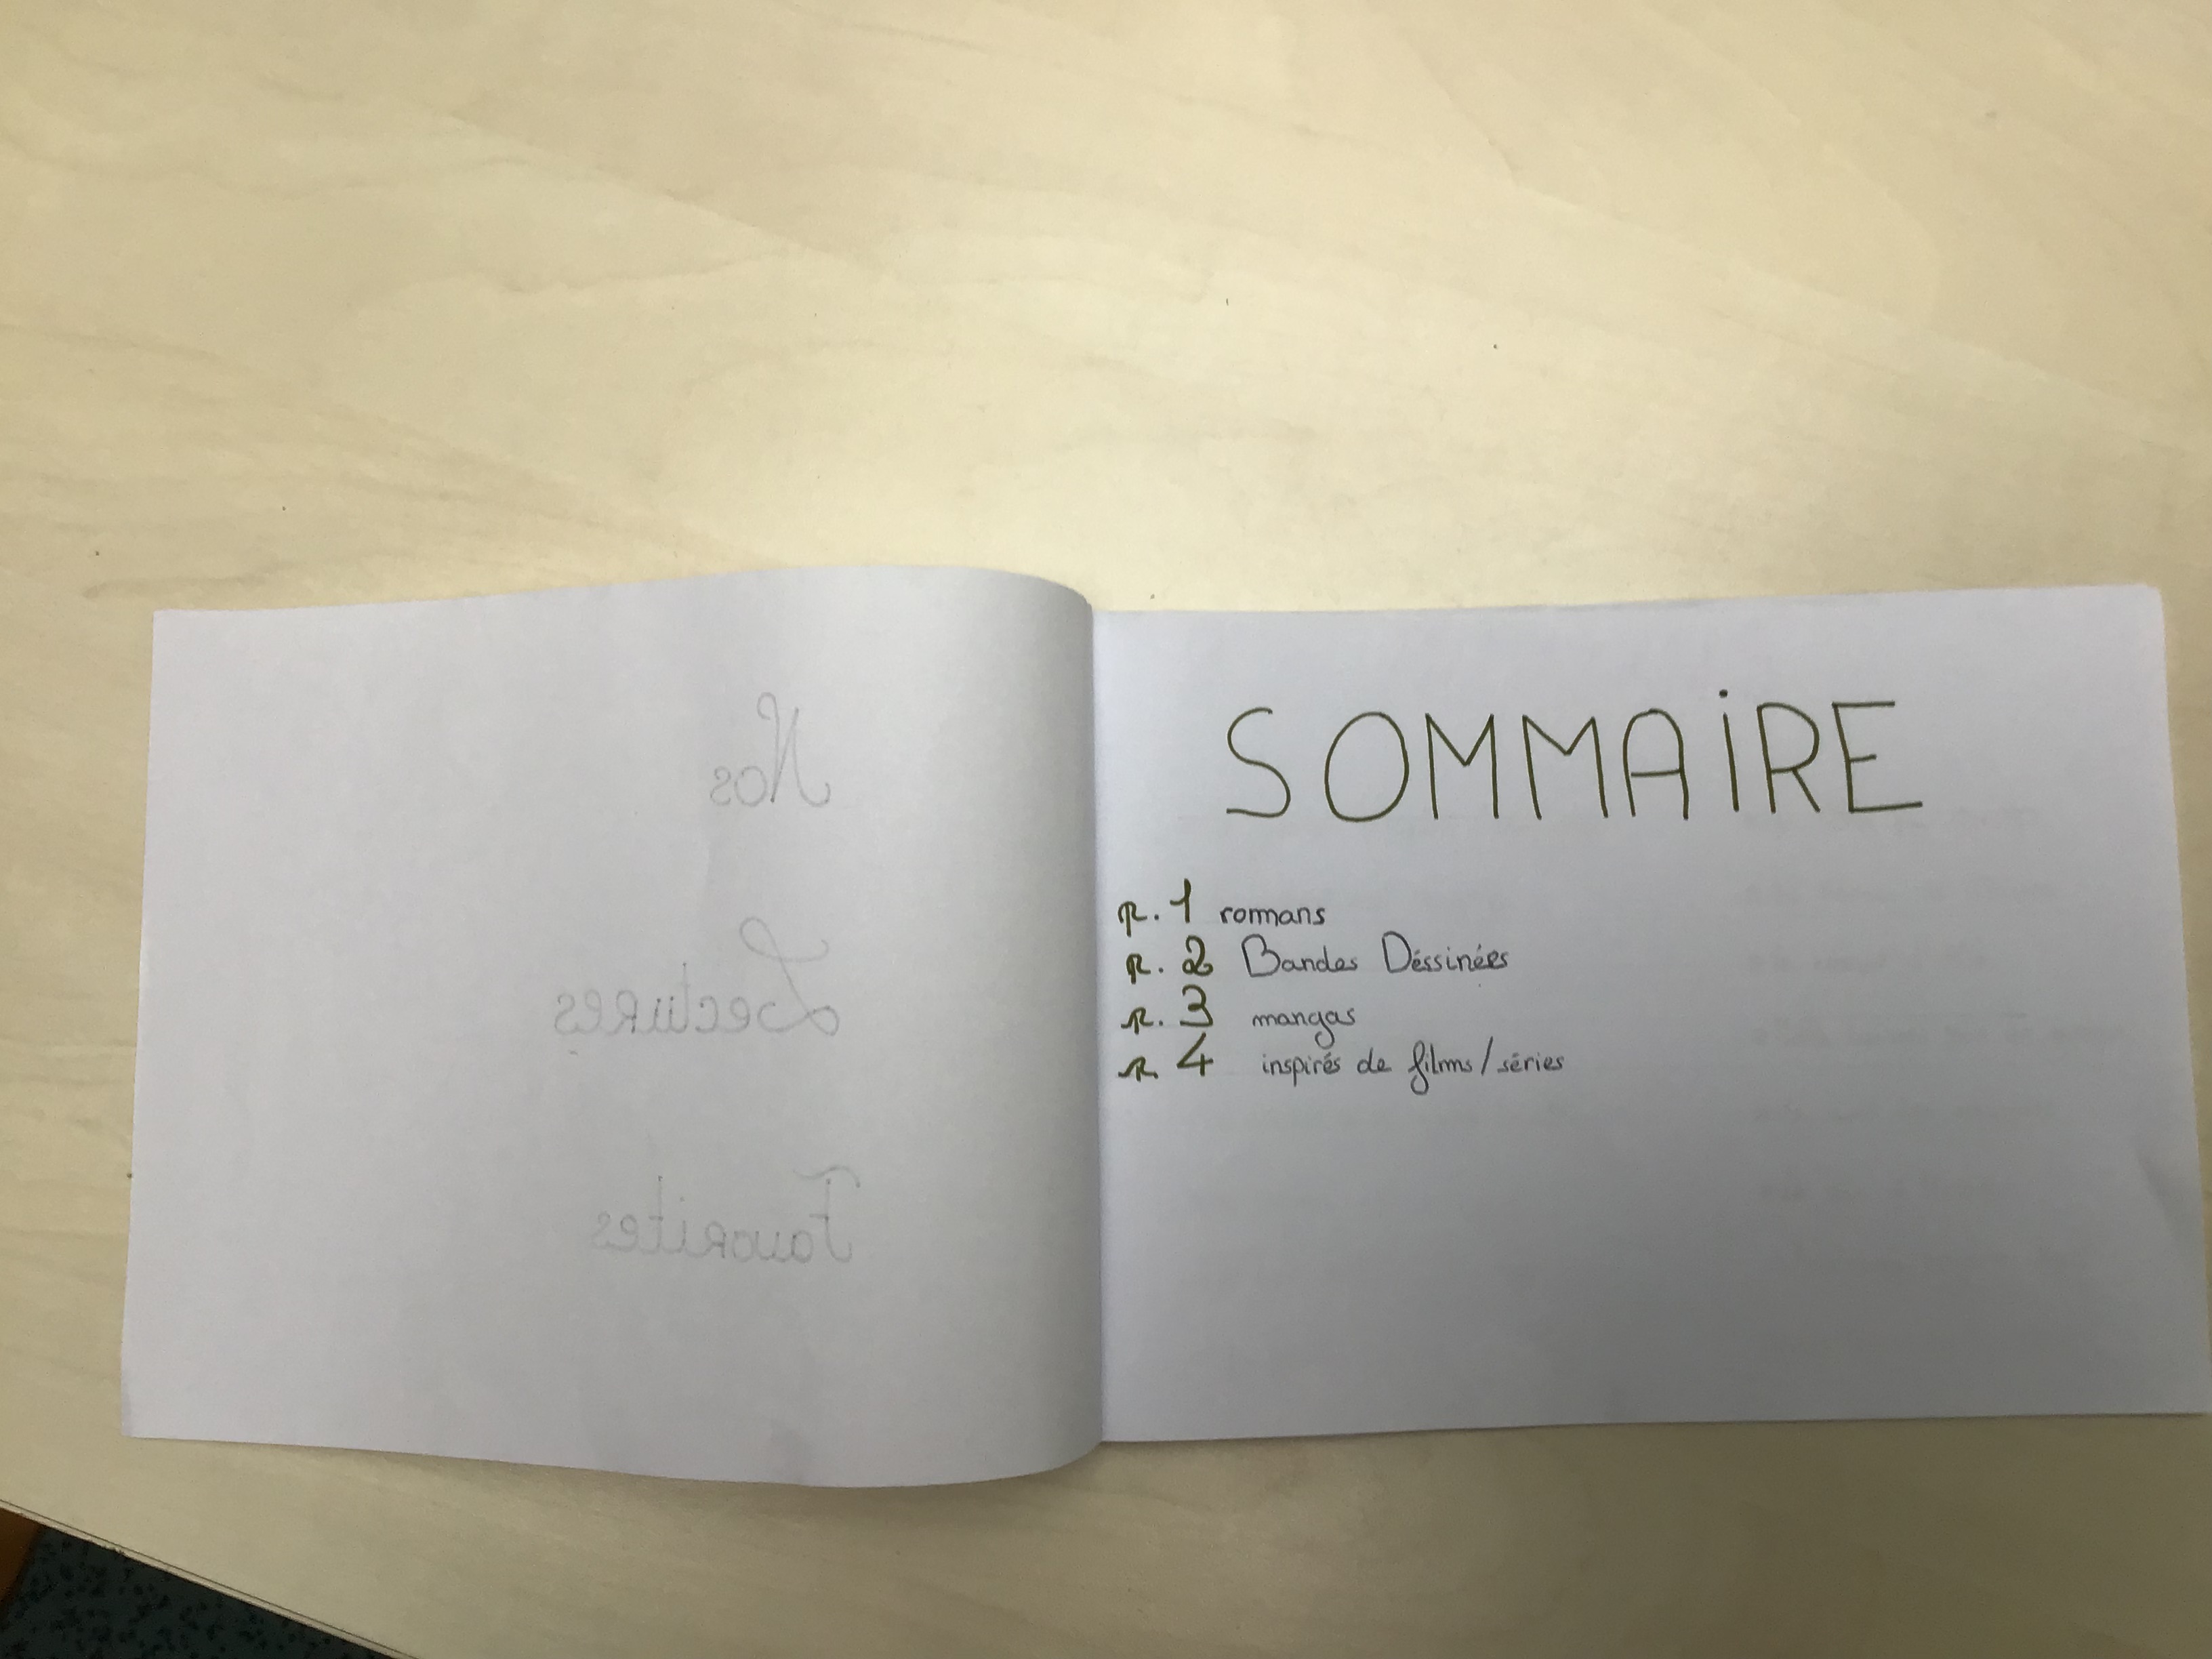 Nos
Lectures
Favorites
SOMMAiRE
p. 1 romans
p. 2 Bandes Déssinées
p. 3 mangas
p. 4 inspirés de films/séries